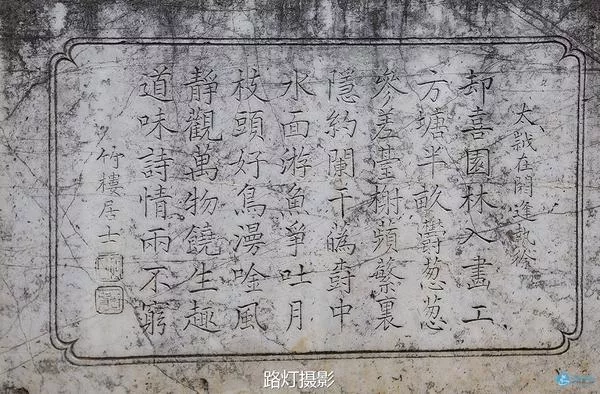 太歲在閼逢執徐
却喜園林入畫工
方塘半畝鬱葱葱
參差臺榭頻繁裏
隱約闌干中
水面游魚爭吐月
枝頭好鳥漫唫風
靜觀萬物饒生趣
道味詩情兩不窮
竹樓居士
路灯摄影